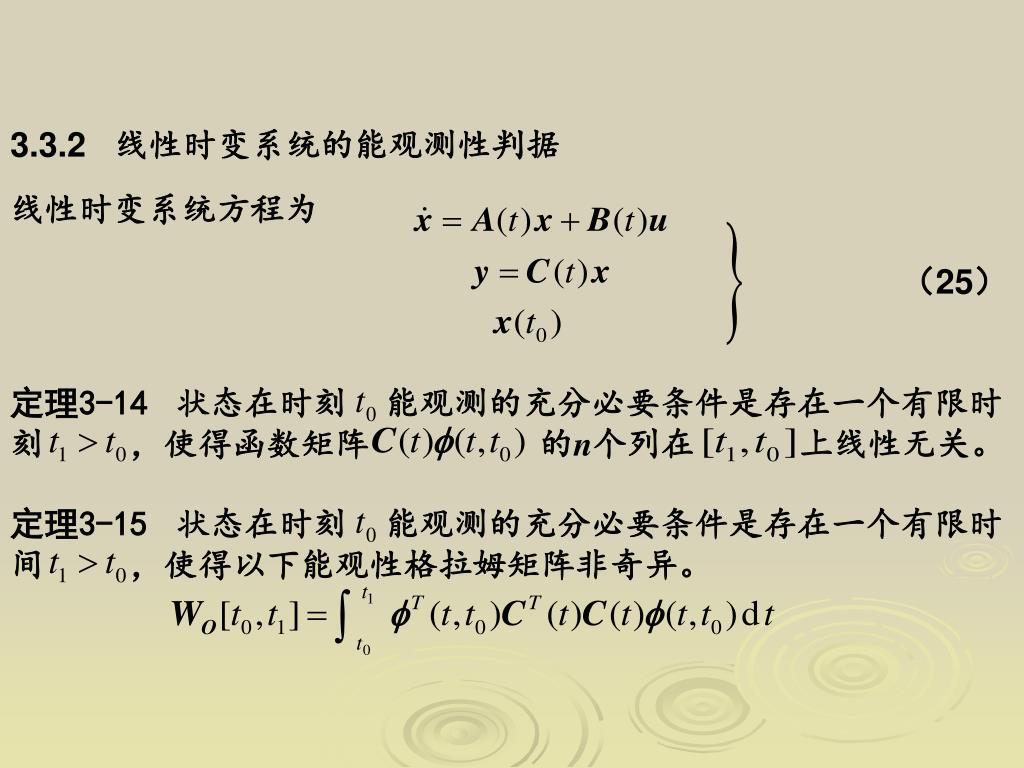 3.3.2 线性时变系统的能观测性判据
线性时变系统方程为
ẋ = A(t)x + B(t)u
y = C(t)x
x(t₀)
（25）
定理3-14 状态在时刻 t₀ 能观测的充分必要条件是存在一个有限时
刻 t₁ > t₀，使得函数矩阵 C(t)ϕ(t, t₀) 的n个列在 [t₁, t₀] 上线性无关。
定理3-15 状态在时刻 t₀ 能观测的充分必要条件是存在一个有限时
间 t₁ > t₀，使得以下能观性格拉姆矩阵非奇异。
W_O[t₀, t₁] = ∫_{t₀}^{t₁} ϕᵀ(t, t₀)Cᵀ(t)C(t)ϕ(t, t₀)dt